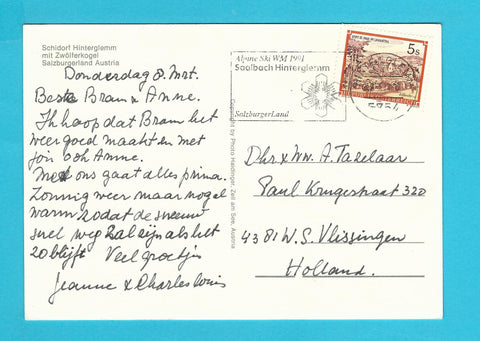 Schidorf Hinterglemm
mit Zwölferkogel
Salzburgerland Austria
Donderdag 8. Mrt.
Beste Bram & Anne.
Ik hoop dat Bram het
weer goed maakt en met
jou ook Anne.
Met ons gaat alles prima.
Zonnig weer maar nogal
warm zodat de sneeuw
snel weg zal zijn als het
zo blijft Veel groetjes
Jeanne & Charles
Copyright by Photo Haidinger, Zell am See, Austria
Alpine Ski WM 1991
Saalbach Hinterglemm
SalzburgerLand
5s
5754
Dhr & Mw. A. Tazelaar
Paul Krugerstraat 320
4381 W.S. Vlissingen
Holland.